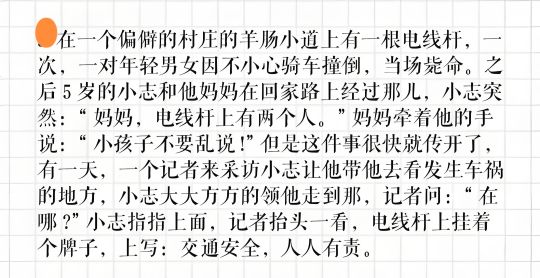 在一个偏僻的村庄的羊肠小道上有一根电线杆，一
次，一对年轻男女因不小心骑车撞倒，当场毙命。之
后5岁的小志和他妈妈在回家路上经过那儿，小志突
然：“妈妈，电线杆上有两个人。”妈妈牵着他的手
说：“小孩子不要乱说！”但是这件事很快就传开了，
有一天，一个记者来采访小志让他带他去看发生车祸
的地方，小志大大方方的领他走到那，记者问：“在
哪？”小志指指上面，记者抬头一看，电线杆上挂着
个牌子，上写：交通安全，人人有责。